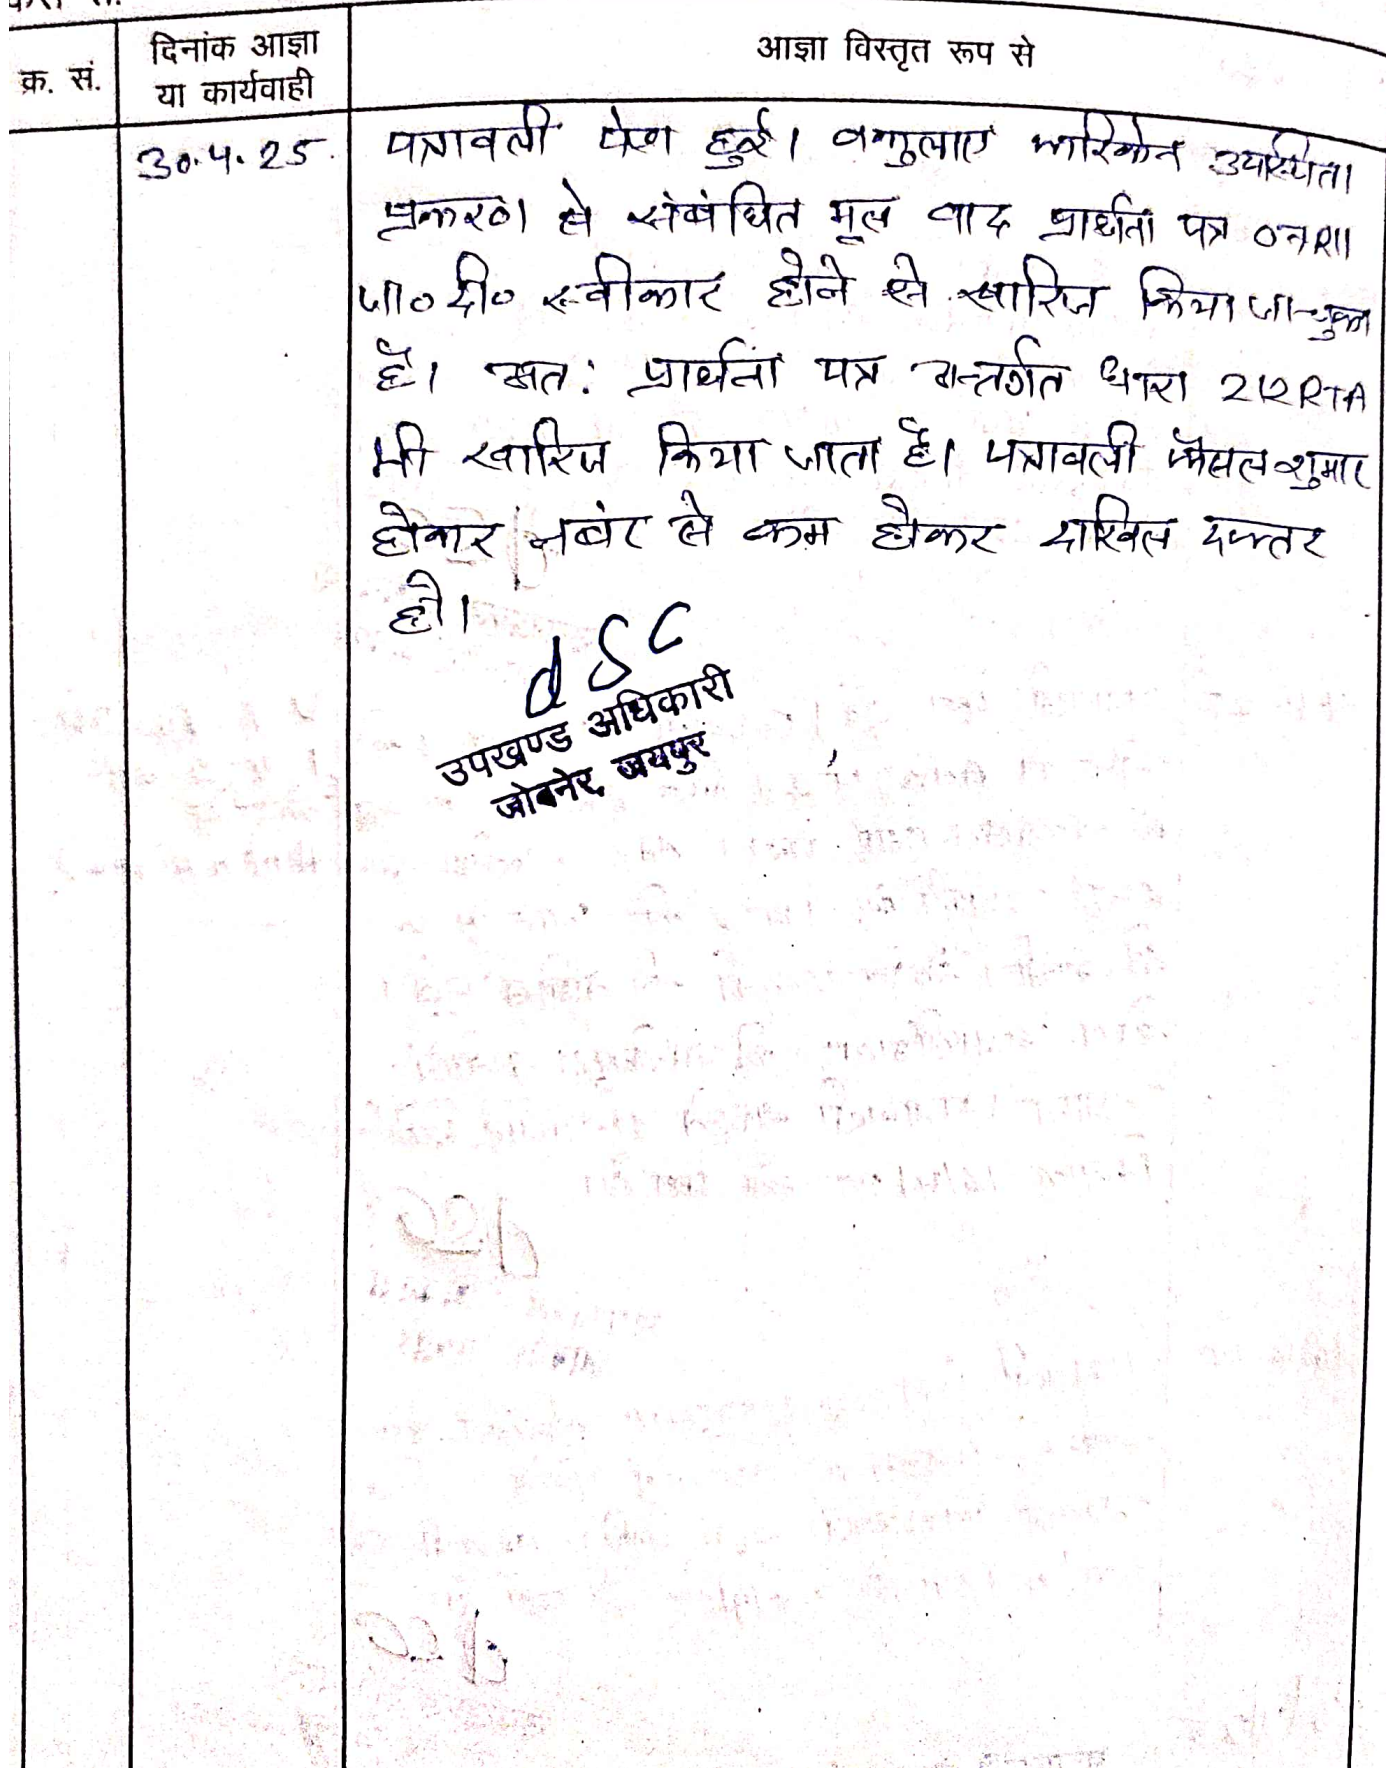 क्र. सं.
दिनांक आज्ञा
या कार्यवाही
आज्ञा विस्तृत रूप से
30.4.25.
पत्रावली पेश हुई। वकुलाए फरिकेन उपस्थित।
प्रकरण से संबंधित मूल वाद प्रार्थना पत्र
जा० दी० स्वीकार होने से खारिज किया जा चुका
है। अतः प्रार्थना पत्र अन्तर्गत धारा 212 RTA
भी खारिज किया जाता है। पत्रावली फैसल शुमार
होकर नबंर से कम होकर दाखिल दफ्तर
हो।
उपखण्ड अधिकारी
जोबनेर, जयपुर